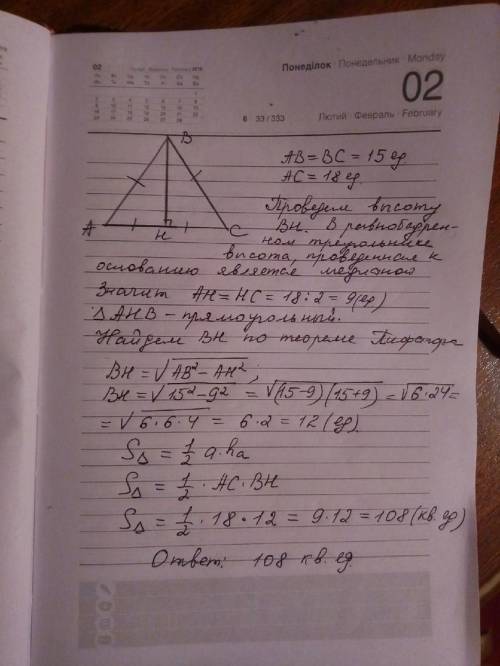 02
Понеділок · Понедельник · Monday
02
6 33/333
Лютий · Февраль · February
B
A
H
C
AB = BC = 15 ед
AC = 18 ед.
Проведем высоту
BH. В равнобедрен-
ном треугольнике
высота, проведенная к
основанию является медианой
Значит AH = HC = 18 : 2 = 9 (ед)
△ AHB - прямоугольный.
Найдем BH по теореме Пифагора
BH = √AB² - AH² ;
BH = √15² - 9² = √(15-9)(15+9) = √6·24 =
= √6·6·4 = 6·2 = 12 (ед).
S△ = 1/2 a·ha
S△ = 1/2 · AC · BH
S△ = 1/2 · 18 · 12 = 9·12 = 108 (кв. ед)
Ответ: 108 кв. ед.